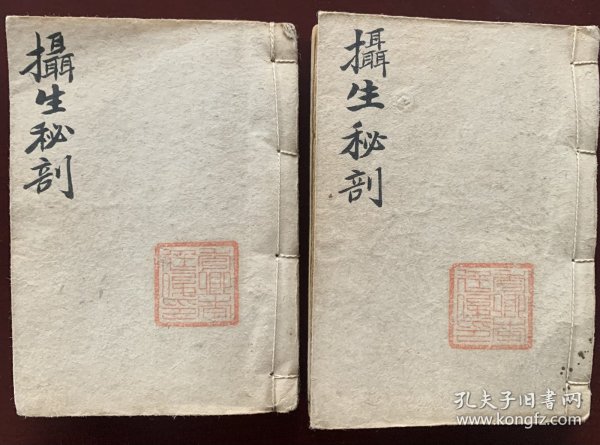 攝生秘剖
攝生秘剖
孔夫子旧書网
www.kongfz.com